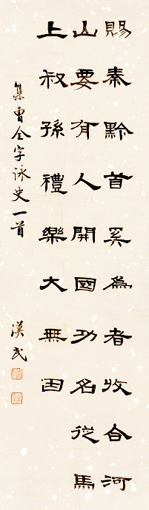 賜秦黔首奚爲者收合河
山要有人開國功名從馬
上叔孫禮樂大無因
集曹全字詠史一首
漢民